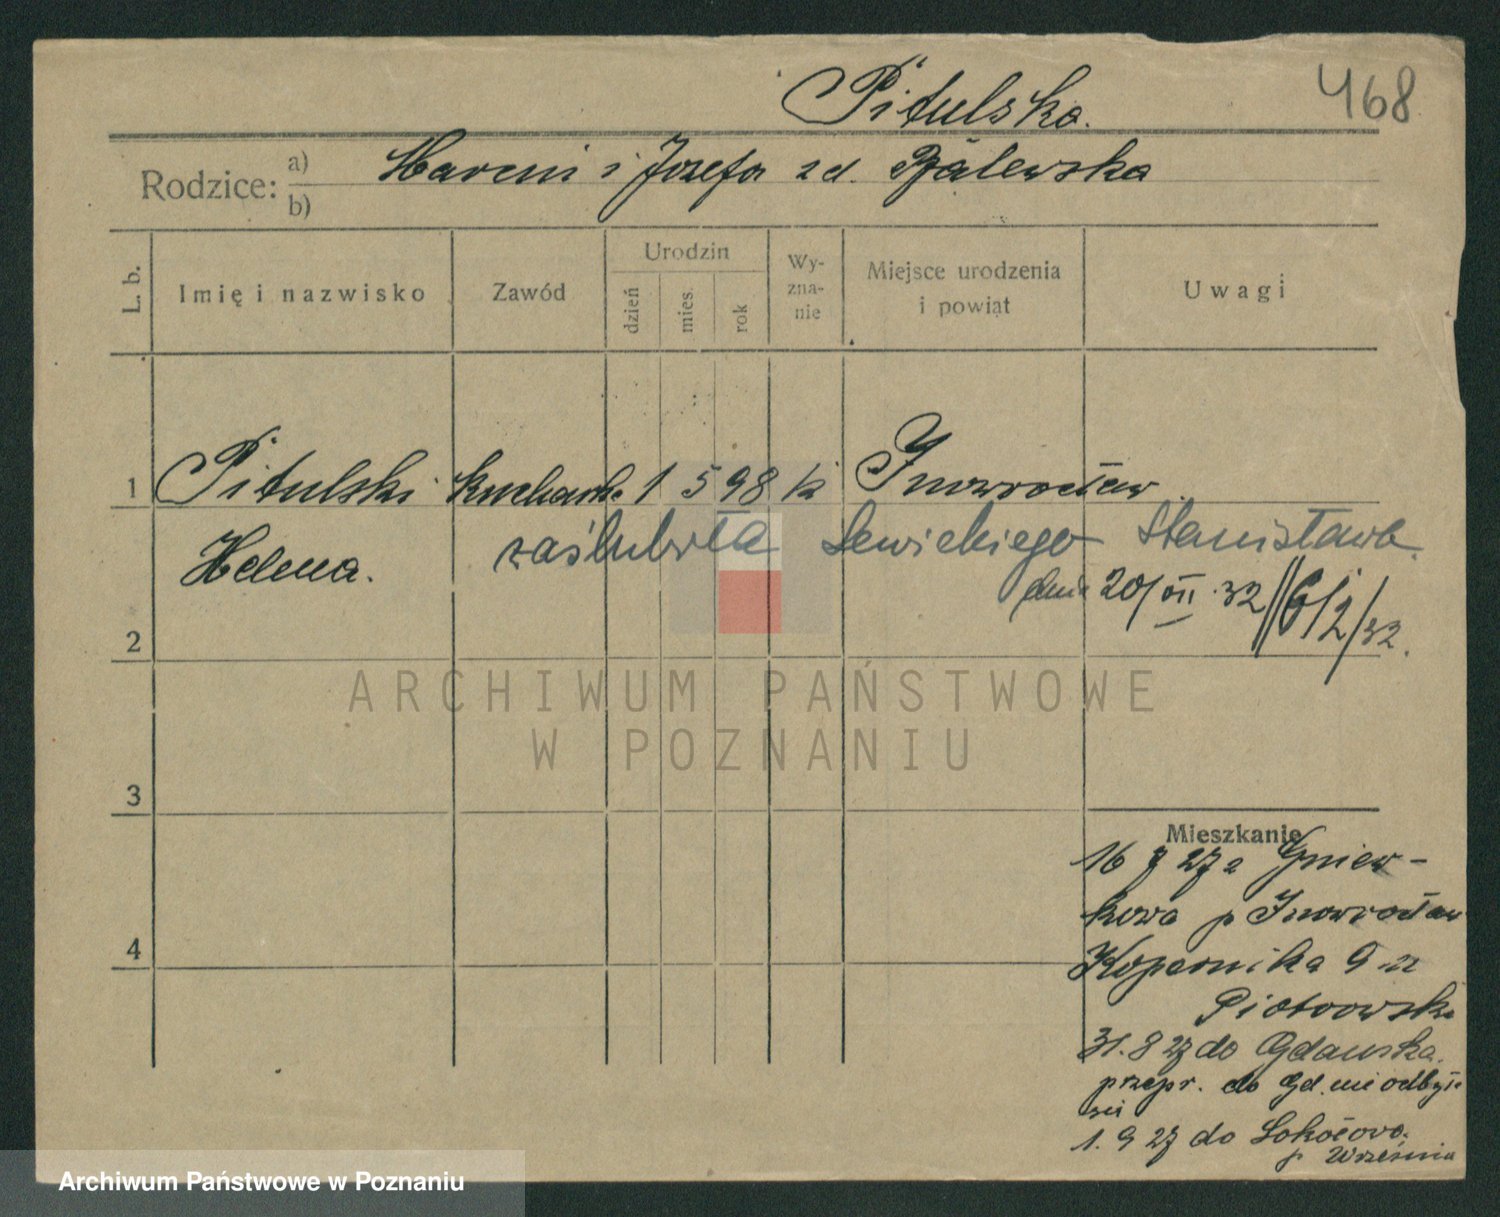 468
Pitulska.
Rodzice: a) b) Marcin i Józefa z d. Balewska
L. b.
Imię i nazwisko
Zawód
Urodzin
dzień
mies.
rok
Wy-
zna-
nie
Miejsce urodzenia
i powiąt
Uwagi
1 Pitulski kuchark. 1 5 98 k Inowrocław
Helena.
zaślubiła Lewickiego Stanisława.
dnia 20/VII 32 // 6/2/32.
2
ARCHIWUM PAŃSTWOWE
W POZNANIU
3
Mieszkanie
16 7 27 z Gniew-
kowa p Inowrocław
4
Kopernika 9
Piotrowski
31. 8 27 do Gdańska.
przepr. do Gd. nie odbyła
się
1. 9 27 do Sokołowa.
p Września
Archiwum Państwowe w Poznaniu